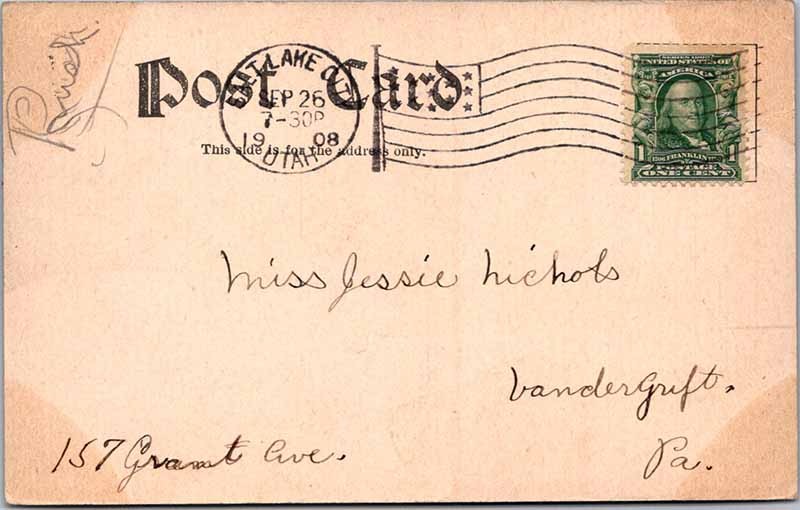 Rush.
Post Card
SALT LAKE CITY
SEP 26
7-30P
1908
UTAH
This side is for the address only.
SERIES 1902
UNITED STATES OF
AMERICA
FRANKLIN
1 1
POSTAGE
ONE CENT
Miss Jessie Nichols
Vandergrift.
157 Grant Ave.
Pa.